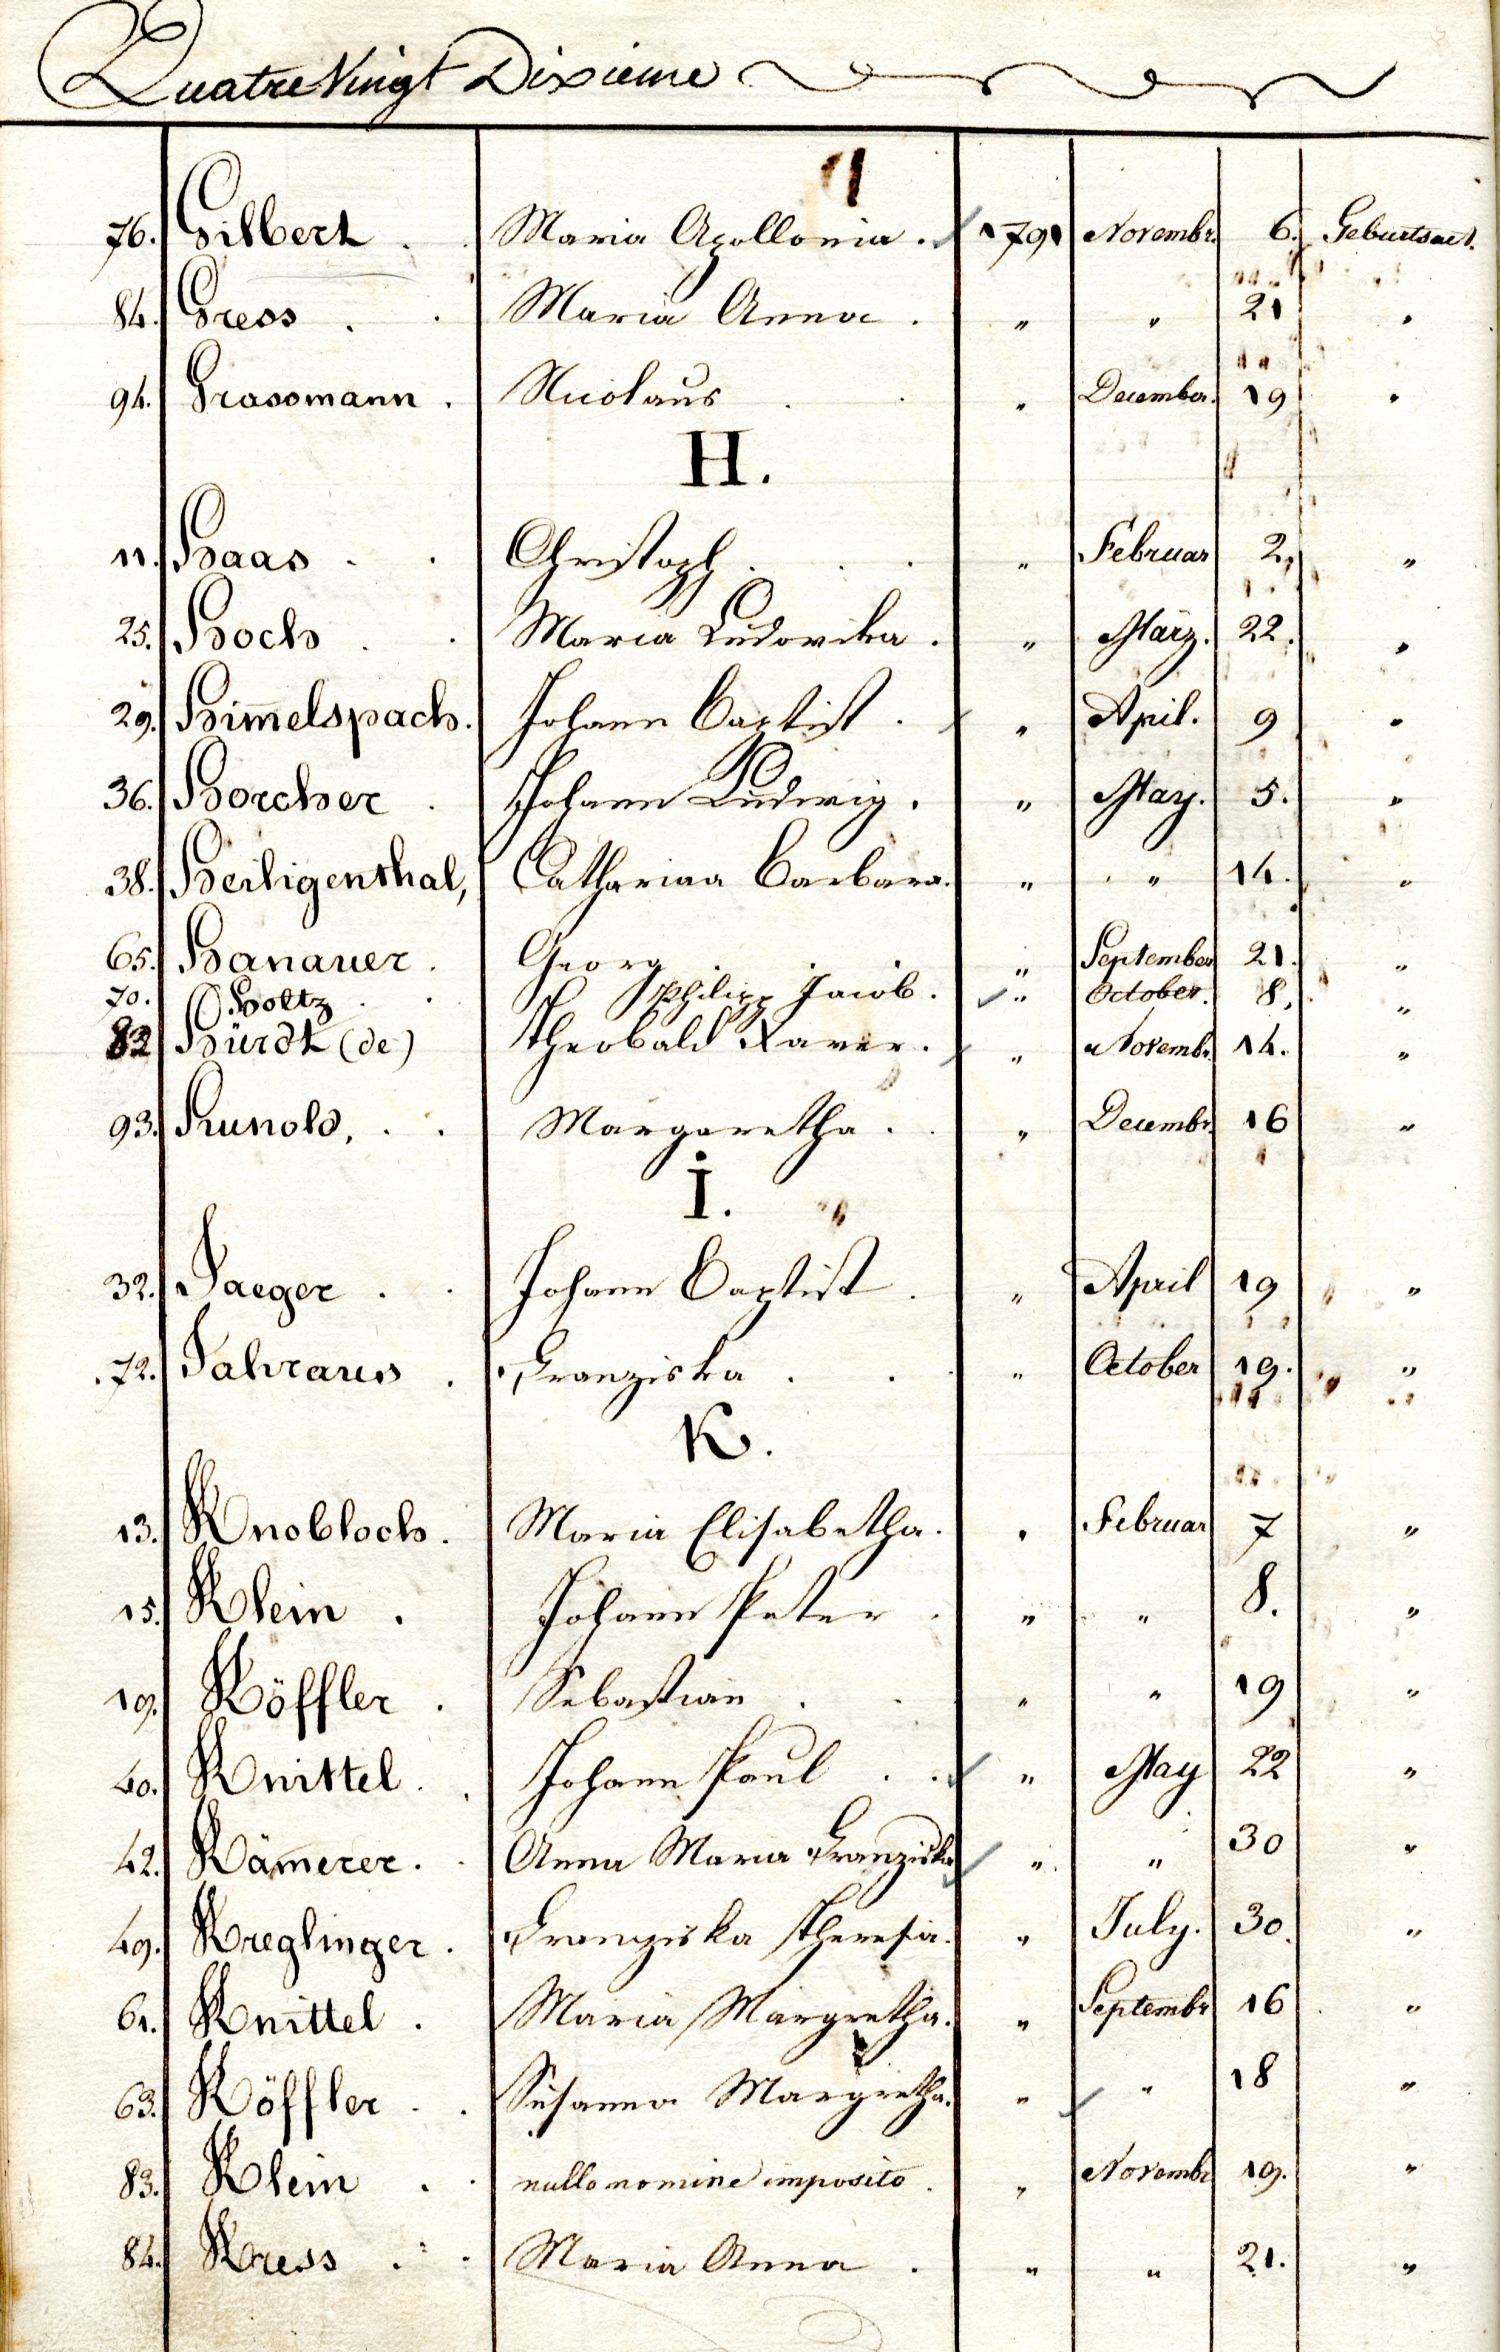 Quatre Vingt Dixieme
76. Gilbert . . Maria Apollonia . 1791 Novembr. 6. Geburtsact.
84. Gress . . Maria Anna . " " 21 "
94. Grassmann . Nicolaus . . " December. 19 "
H.
11. Haas . . Christoph . . . " Februar 2, "
25. Hoch . . Maria Ludovika . " März. 22. "
29. Him̄elspach. Johann Baptist . " April. 9 "
36. Horcher . Johann Ludwig . " May. 5. "
38. Heiligenthal, Catharina Barbara. " " 14. "
65. Hanauer . Georg . . . " September 21. "
70. Holtz . . Philipp Jacob . " October. 8, "
82 Hürdt (de) Theobald Xaver. " Novembr. 14. "
93. Hunold, . . Margaretha . . " Decembr. 16 "
I.
32. Jaeger . . Johann Baptist . " April 19 "
72. Jahraus . Franziska . . . " October 19. "
K.
13. Knobloch . Maria Elisabetha. " Februar 7 "
15. Klein . Johann Peter . " " 8. "
19. Köffler . Sebastian . . " " 19 "
40. Knittel . Johann Paul . . " May 22 "
42. Käm̄erer . . Anna Maria Franziska " " 30 "
49. Kreglinger . Franziska Theresia. " July. 30. "
61. Knittel . Maria Margretha. " Septembr 16 "
63. Köffler . . Susanna Margretha. " " 18 "
83. Klein . . nullo nomine imposito . " Novembr 19. "
84. Kress . . Maria Anna . " " 21. "